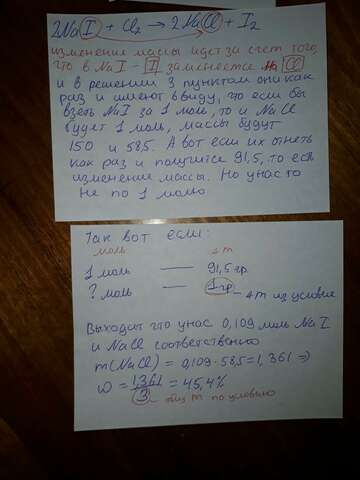 2NaI + Cl₂ → 2NaCl + I₂
изменение массы идет за счет того,
что в NaI - I заместился на Cl
и в решении 3 пунктом они как
раз и имеют ввиду, что если бы
взять NaI за 1 моль, то и NaCl
будет 1 моль, массы будут
150 и 58,5. А вот если их отнять
как раз и получится 91,5, то есть
изменение массы. Но у нас то
не по 1 молю.
Так вот если:
моль △m
1 моль — 91,5 гр.
? моль — 1 гр
△m из условия
Выходит что у нас 0,109 моль NaI
и NaCl соответственно
m(NaCl) = 0,109 · 58,5 = 1,361 ⇒
ω = 1,361 / 3 = 45,4%
m по условию